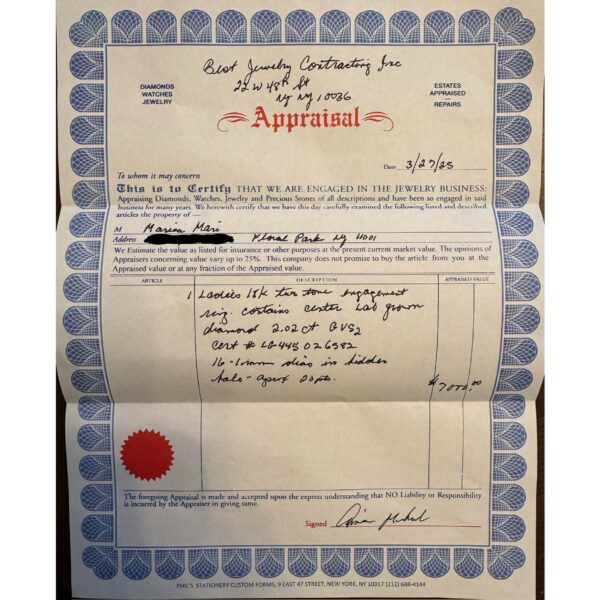 Best Jewelry Contracting Inc
22 W 48th St
NY NY 10036
DIAMONDS
WATCHES
JEWELRY
ESTATES
APPRAISED
•
REPAIRS
Appraisal
Date 3/27/25
To whom it may concern
This is to Certify THAT WE ARE ENGAGED IN THE JEWELRY BUSINESS:
Appraising Diamonds, Watches, Jewelry and Precious Stones of all descriptions and have been so engaged in said
business for many years. We herewith certify that we have this day carefully examined the following listed and described
articles the property of —
M Marisa Mari
Address Floral Park NY 11001
We Estimate the value as listed for insurance or other purposes at the present current market value. The opinions of
Appraisers concerning value vary up to 25%. This company does not promise to buy the article from you at the
Appraised value or at any fraction of the Appraised value.
ARTICLE DESCRIPTION APPRAISED VALUE
1 Ladies 18k two tone engagement
ring. contains center Lab grown
diamond 2.02 ct G VS2
Cert # LG445026582
16-1mm dias in hidden
halo - aprox 20pts. $7000.00
The foregoing Appraisal is made and accepted upon the express understanding that NO Liability or Responsibility
is incurred by the Appraiser in giving same.
Signed
PHIL'S STATIONERY CUSTOM FORMS, 9 EAST 47 STREET, NEW YORK, NY 10017 (212) 688-4144